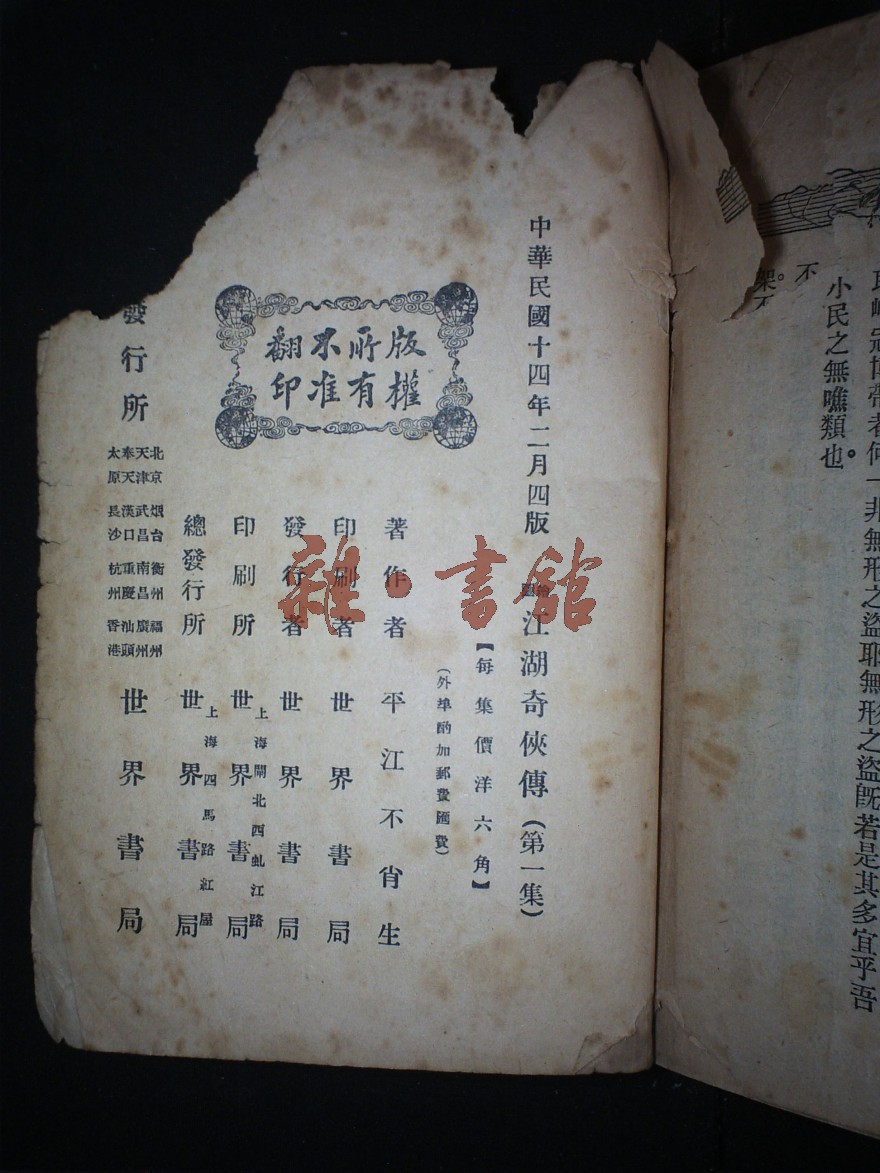 冠博帶者何一非無形之盜耶無形之盜旣若是其多宜乎吾
小民之無噍類也。
不
架。
中華民國十四年二月四版
江湖奇俠傳(第一集)
【每集價洋六角】
(外埠酌加郵費匯費)
版權
所有
不准
翻印
著作者 平江不肖生
印刷者 世界書局
發行者 世界書局
印刷所 上海閘北西虬江路 世界書局
總發行所 上海四馬路紅屋 世界書局
發行所
北京 烟台 衡州 福州
天津 武昌 南昌 廣州
奉天 漢口 重慶 汕頭
太原 長沙 杭州 香港
世界書局
雜·書館